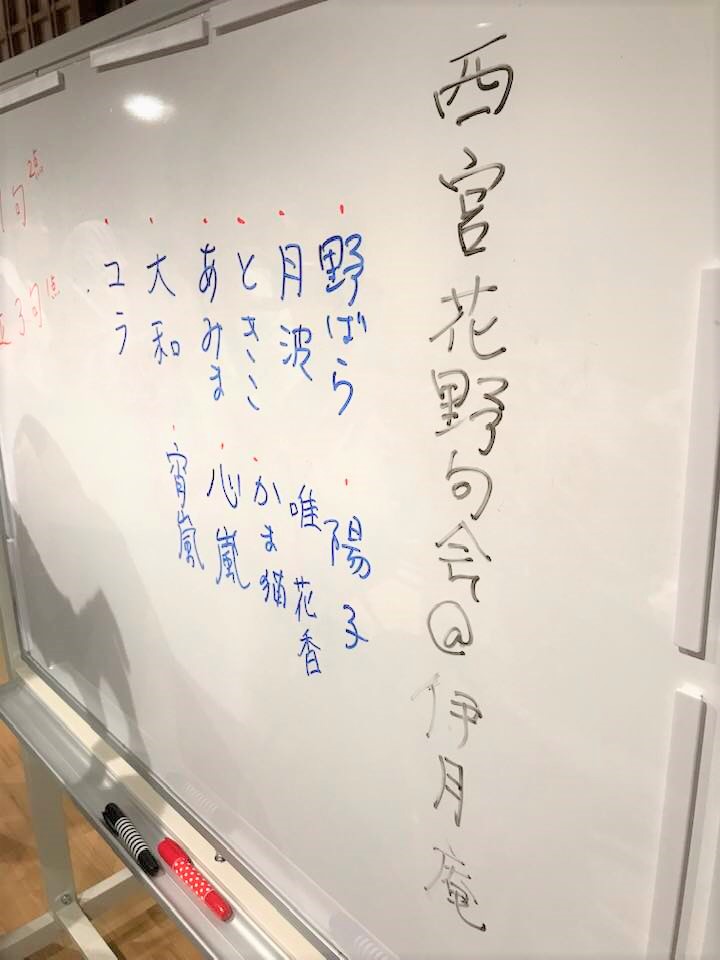 西宮花野句会@伊月庵
野ばら
月波
ときこ
あみま
大和
ユラ
陽子
唯花香
かま猫
心嵐
宵嵐
句2点
3句1点